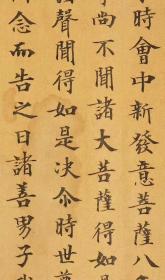 時會中新發意菩薩八
尚不聞諸大菩薩得如是
聲聞得如是決尒時世尊
念而告之曰諸善男子